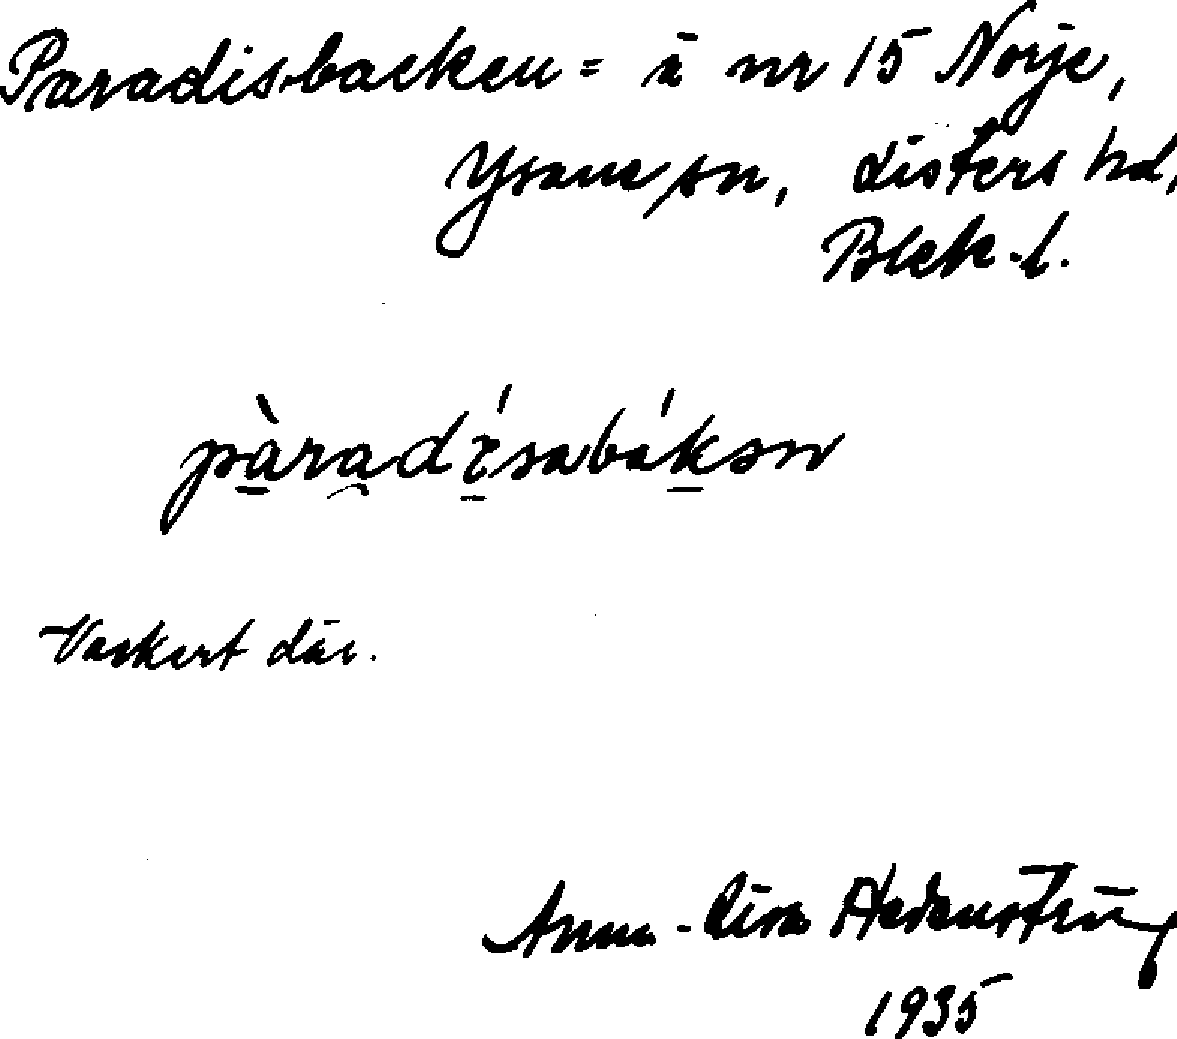 Paradisbacken = å nr 15 Norje,
Ysane sn, Listers hd,
Blek. l.
pàradísabákən
Vackert där.
Anna-Lisa
1935